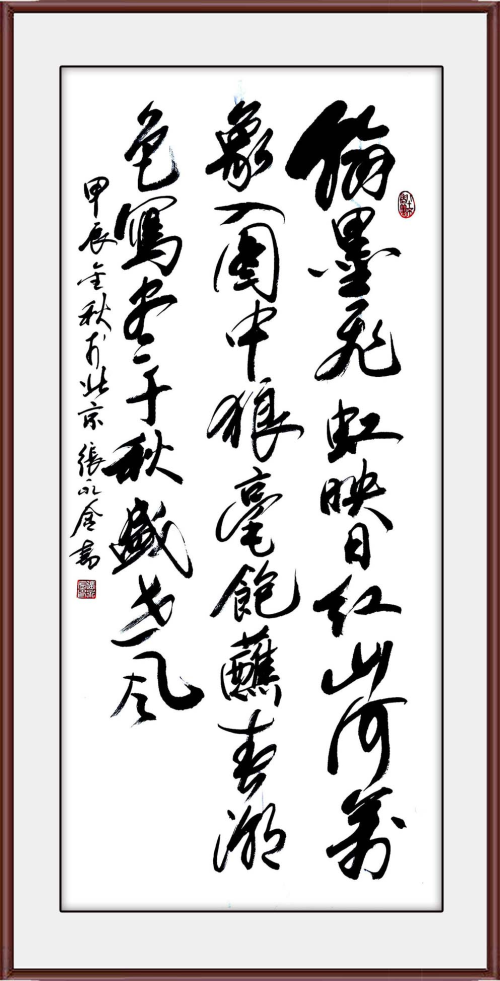 翰墨飛虹映日紅山河萬
象入圖中狼毫飽蘸春潮
色寫尽千秋盛世風
甲辰金秋于北京張永金書